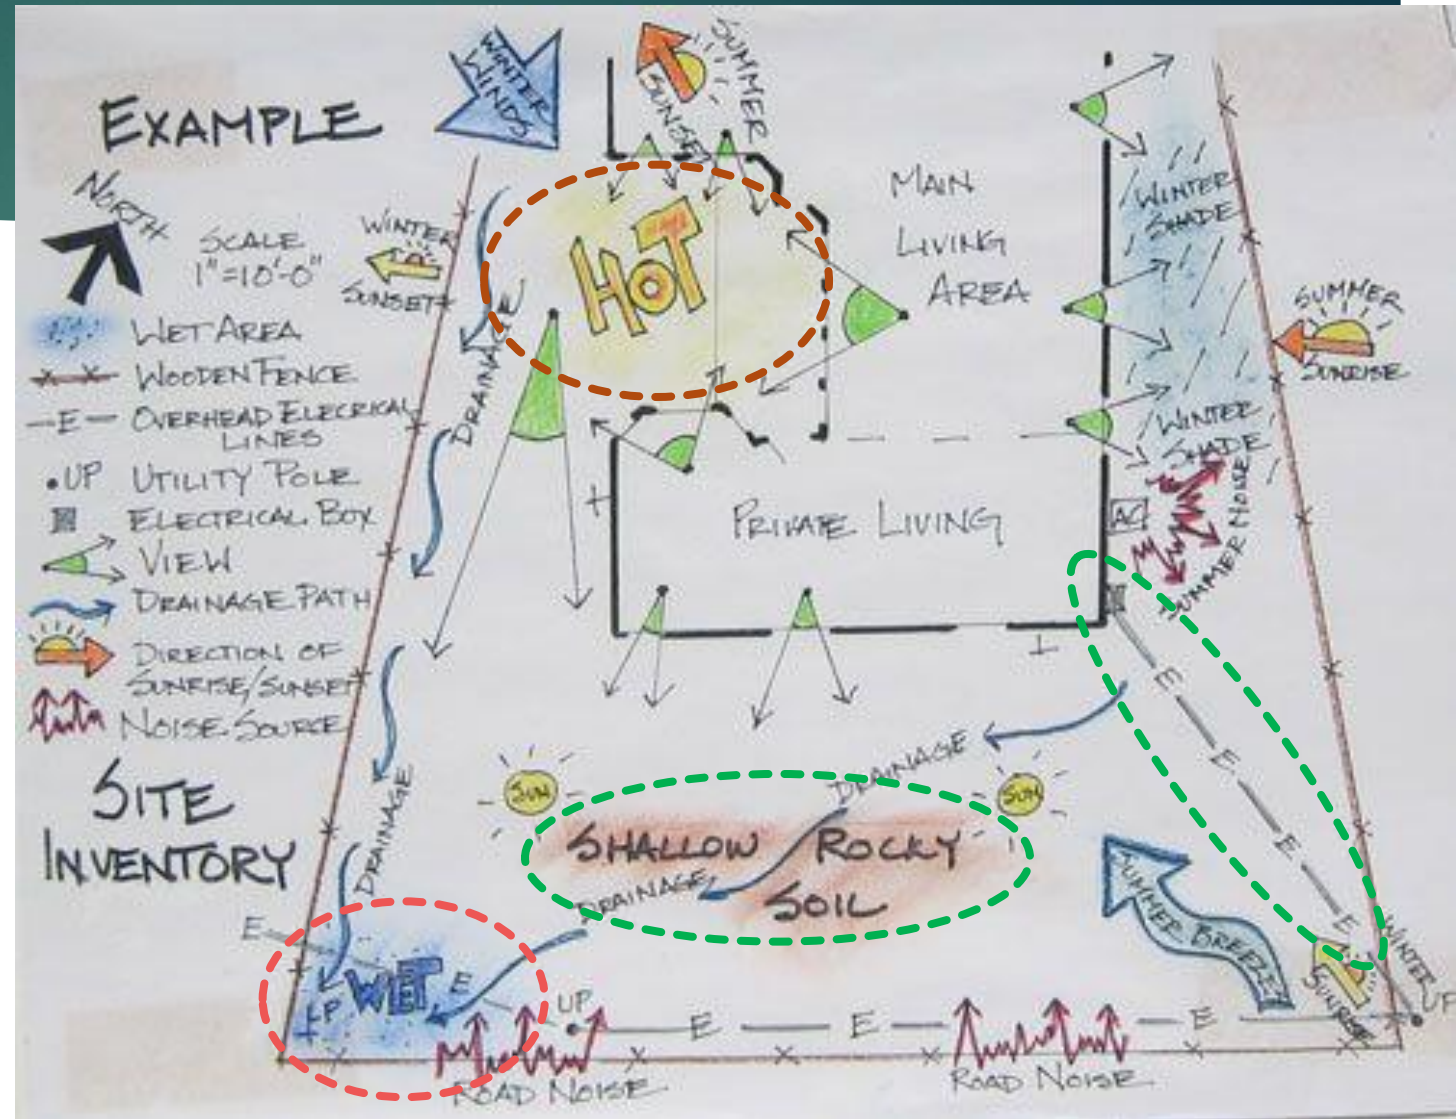 EXAMPLE
NORTH
SCALE
1"=10'-0"
WET AREA
WOODEN FENCE
-E- OVERHEAD ELECRICAL
LINES
.UP UTILITY POLE
ELECTRICAL BOX
VIEW
DRAINAGE PATH
DIRECTION OF
SUNRISE/SUNSET
NOISE SOURCE
SITE
INVENTORY
WINTER
WINDS
SUMMER
SUNSET
WINTER
SUNSET
HOT
MAIN
LIVING
AREA
WINTER
SHADE
SUMMER
SUNRISE
DRAINAGE
WINTER
SHADE
PRIVATE LIVING
AC
SUMMER NOISE
E
E
E
E
DRAINAGE
SUN
SUN
DRAINAGE
SHALLOW ROCKY
SOIL
DRAINAGE
SUMMER BREEZE
WINTER
SUNRISE
E
WET
E
UP
E
E
E
ROAD NOISE
ROAD NOISE